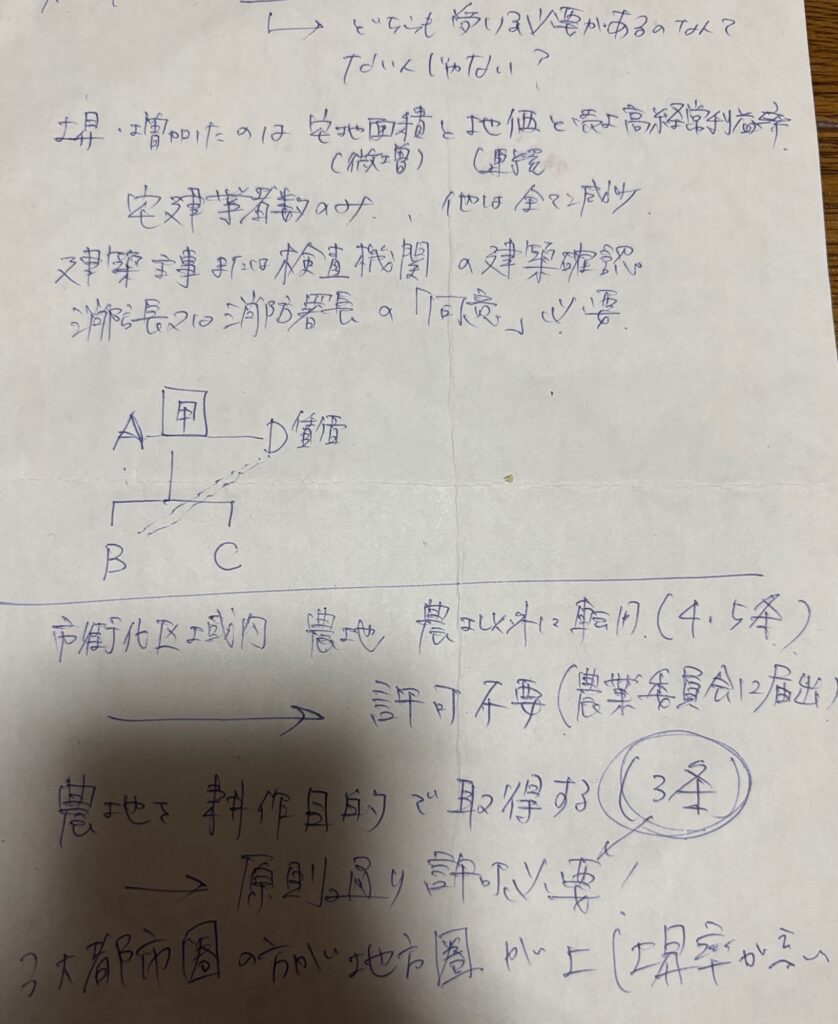 どちらも受ける必要があるのなんて
ないんじゃない?
上昇・増加したのは 宅地面積と地価と 高経常利益率
(微増)
宅建業者数のみ、他は全て減少
建築主事または検査機関の建築確認
消防長又は消防署長の「同意」必要
甲
A D 賃借
B C
市街化区域内 農地 農地以外に転用(4、5条)
→ 許可不要(農業委員会に届出)
農地を耕作目的で取得する(3条)
→ 原則通り許可必要!
3大都市圏の方が地方圏が上(上昇率が高い